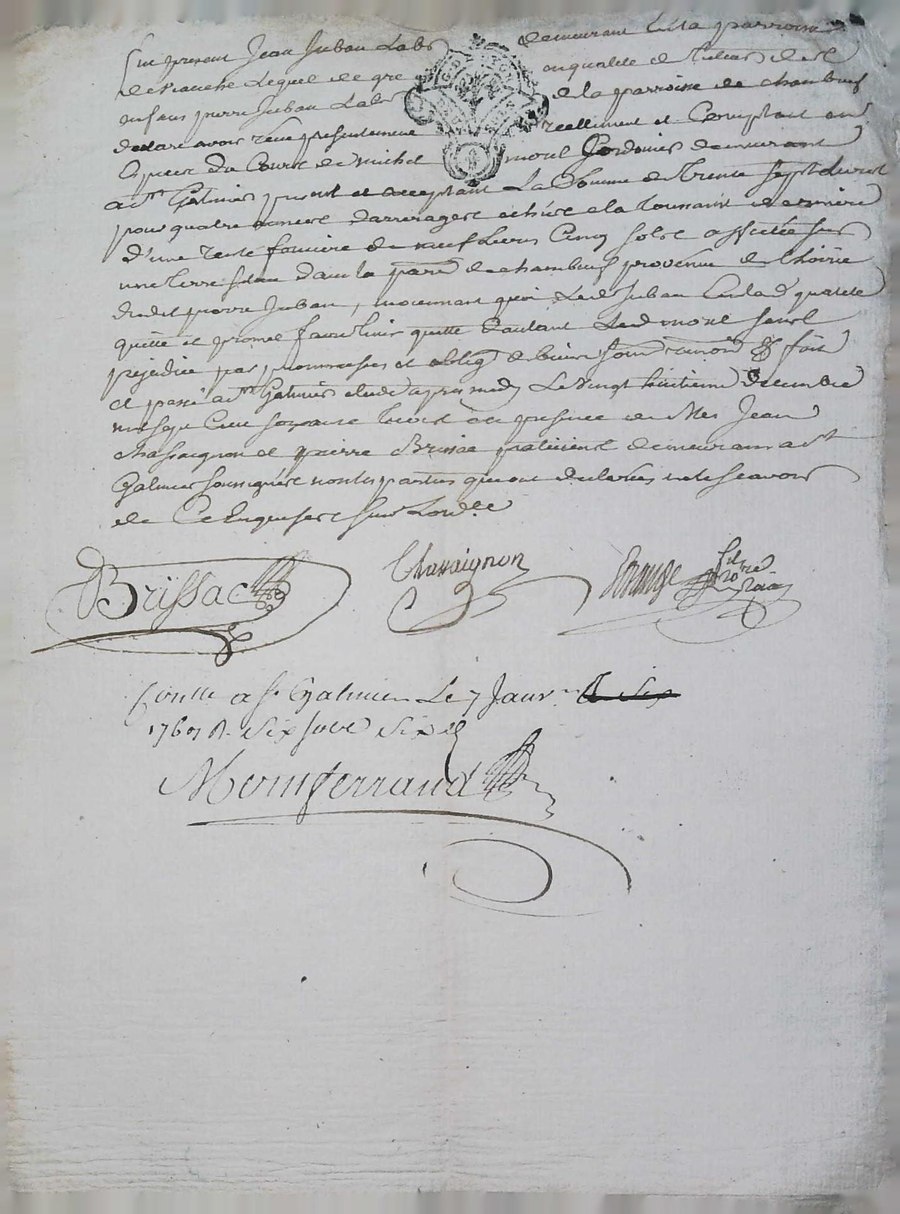 fut present Jean Juban Lab demeurant en la parroisse
de Lequel de gre en qualité de Tuteur de
enfans pierre Juban Lab de la parroisse de chambeuf
declare avoir receu presentement reellement et Comptant en
Especes du Cours de michel mont Cordonier demeurant
a st Galmier present et acceptant La Somme de Trente sept Livres
pour quatre années d'arrerages echües a la Toussaint derniere
d'une rente fonciere de neuf Livres Cinq sols assituée sur
une terre située dans la parse de chambeuf provenue de l'hoirie
dudit pierre Juban, moiennant quoi Led Juban En lad qualité
quitte et promet faire tenir quitte d'autant Led mont sans
prejudice par promesses et oblig de biens soum renon & fait
et passé a st Galmier etude apres midy Le vingt huitieme decembre
mil sept Cent soixante six en presence de Mes Jean
chassaignon et pierre Brissac praticiens demeurants a st
Galmier soussignés non les parties qui ont declarés ne le scavoir
de Ce Enquises sur Lordce
Brissac
Chassaignon
nore royal
Conlle a st Galmier Le 7 Janv
1767 R. six sols six d
Montferrand